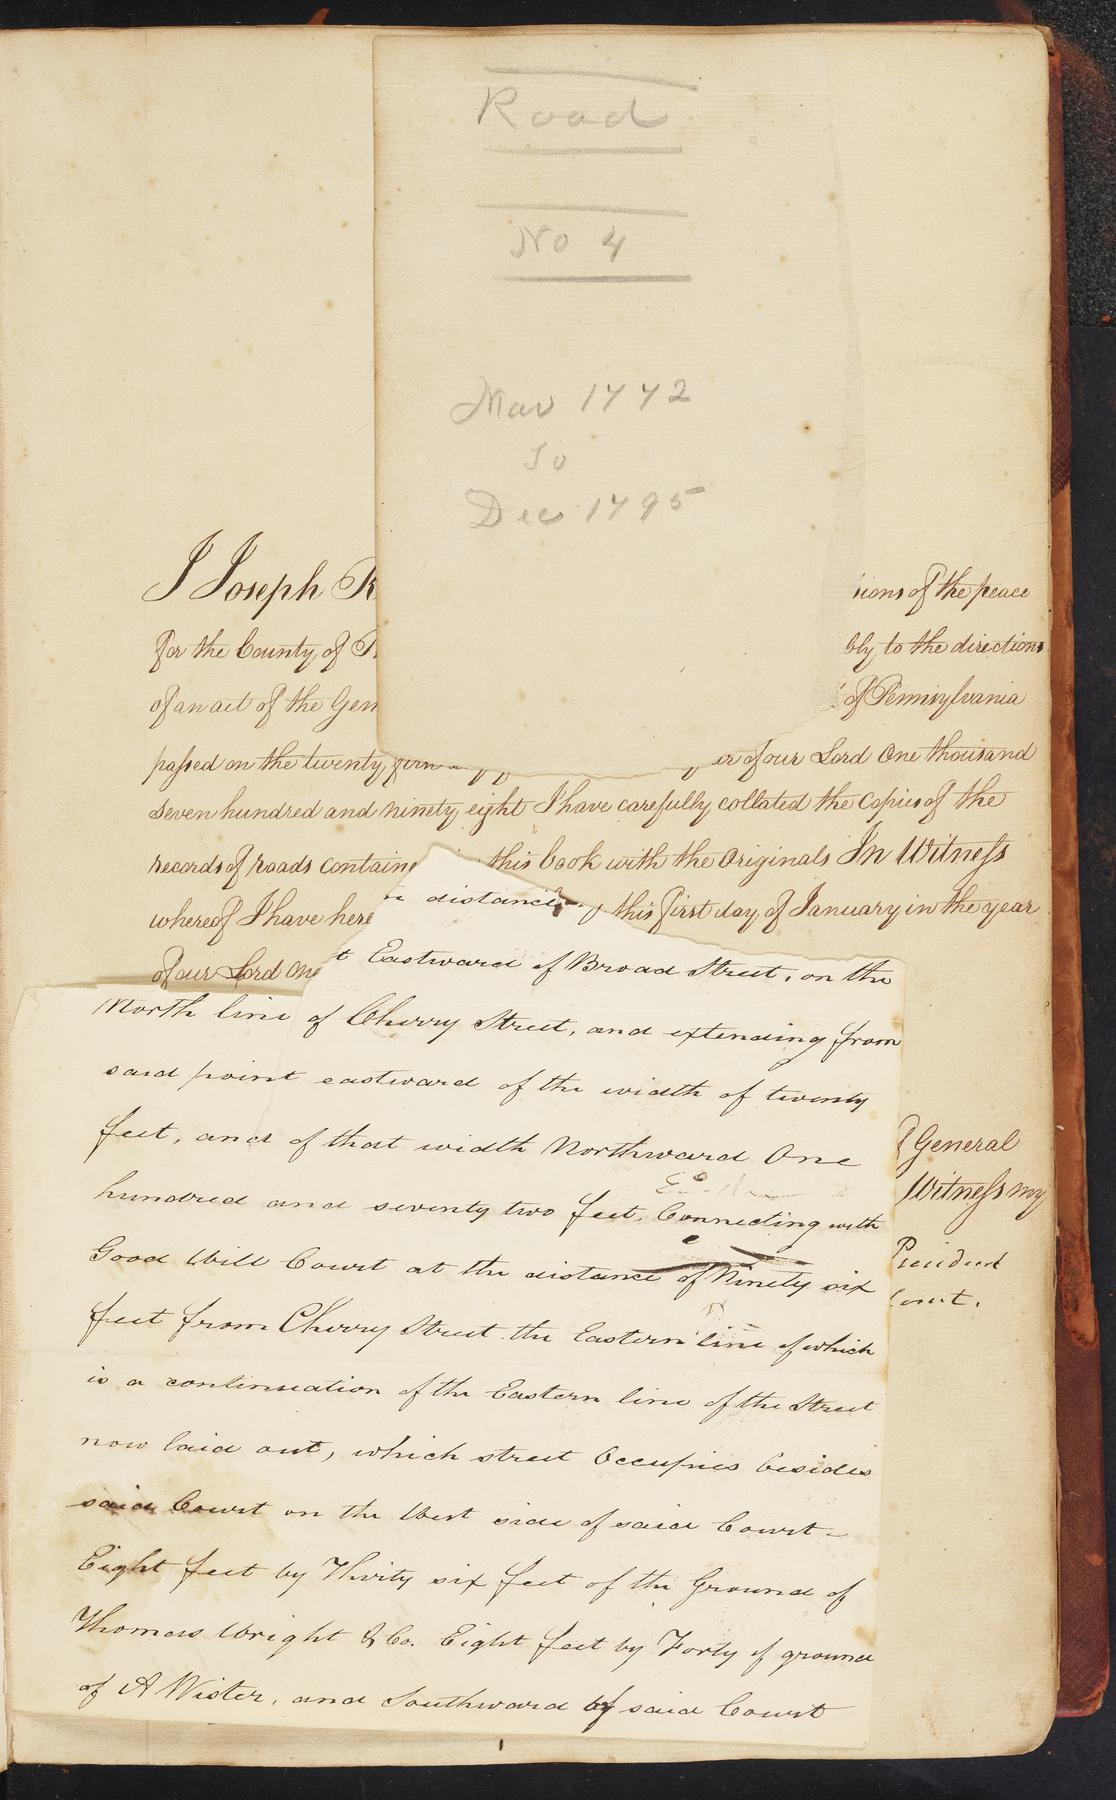 Road
No 4
Mar 1772
To
Dec 1795
I Joseph R
sions of the peace
for the County of P
bly to the directions
of an act of the Gen
of Pennsylvania
passed on the twenty
of our Lord One thousand
seven hundred and ninety eight I have carefully collated the Copies of the
records of roads containe this book with the Originals In Witness
whereof I have here this first day of January in the year
of our Lord One
distance
t Eastward of Broad Street, on the
North line of Cherry Street, and extending from
said point eastward of the width of twenty
feet, and of that width Northward One
hundred and seventy two feet, Connecting with
Good Will Court at the distance of Ninety six
feet from Cherry Street the Eastern line of which
is a continuation of the Eastern line of the Street
now laid out, which street Occupies besides
said Court on the West side of said Court
Eight feet by Thirty six feet of the Ground of
Thomas Wright & Co. Eight feet by Forty of ground
of A Wister, and Southward of said Court
General
Witness my
President
Court.